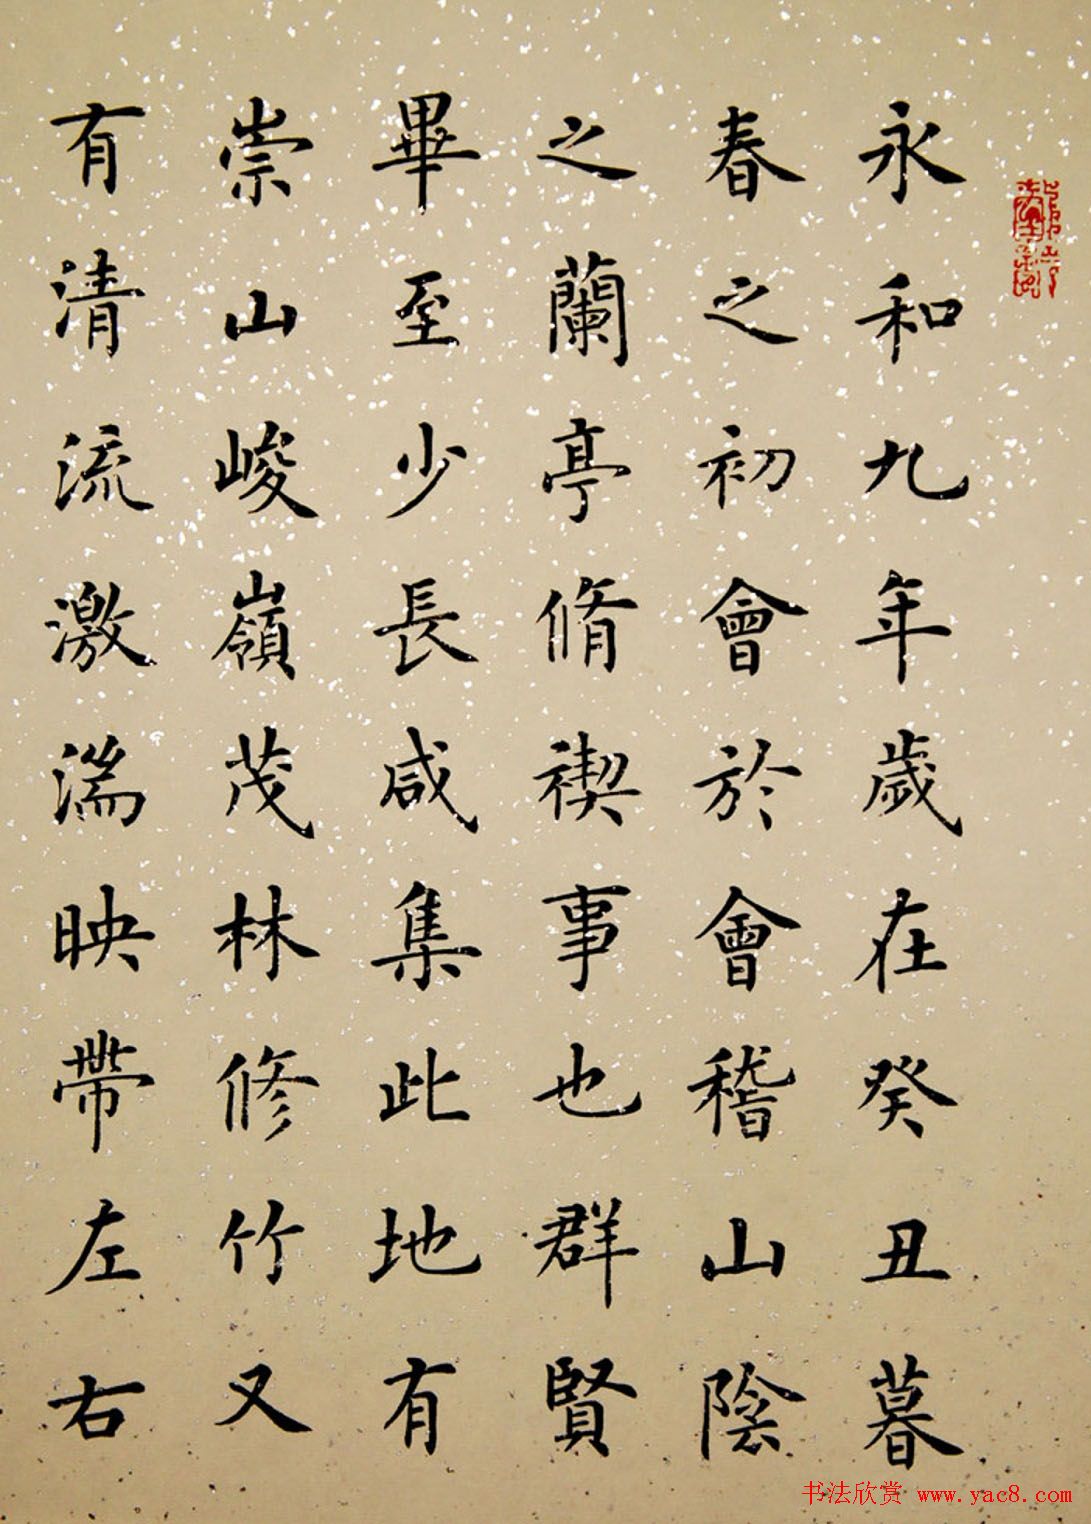 永和九年歲在癸丑暮
春之初會於會稽山陰
之蘭亭脩禊事也群賢
畢至少長咸集此地有
崇山峻嶺茂林修竹又
有清流激湍映帶左右
书法欣赏 www.yac8.com